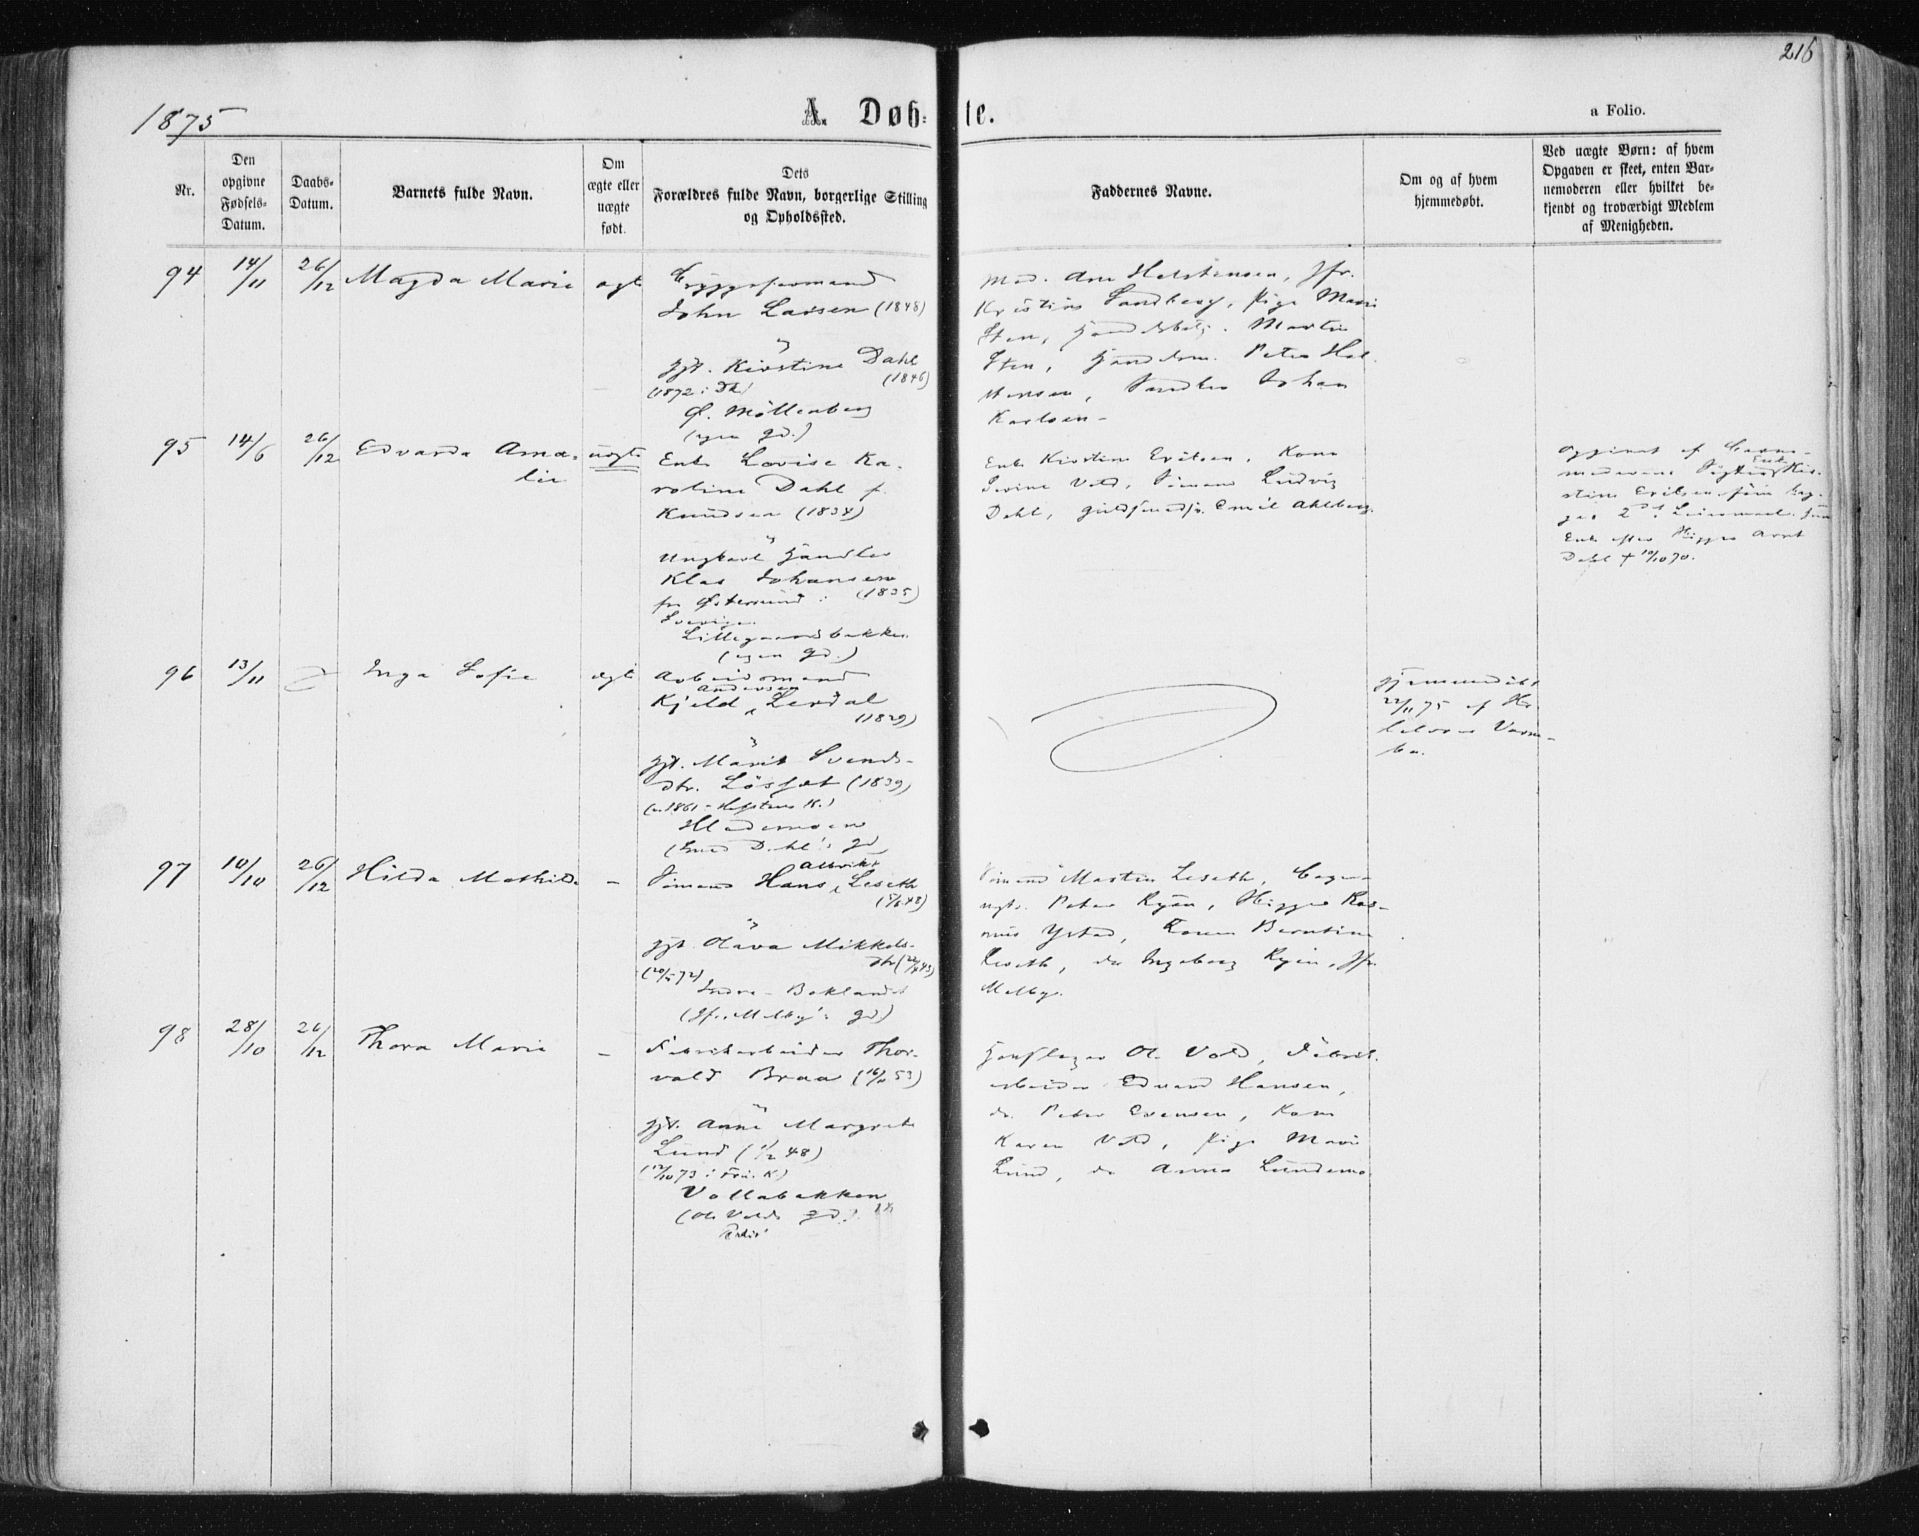 216
1875
A. Døb=te.
a Folio.
Nr.
Den opgivne Fødsels-Datum.
Daabs-Datum.
Barnets fulde Navn.
Om ægte eller uægte født.
Dets Forældres fulde Navn, borgerlige Stilling og Opholdssted.
Faddernes Navne.
Om og af hvem hjemmedøbt.
Ved uægte Børn: af hvem Opgaven er skeet, enten Barnemoderen eller hvilket bekjendt og troværdigt Medlem af Menigheden.
94 14/11 26/12 Magda Marie ægte
Bryggeformand
John Larsen (1848)
gjt. Kirstine Dahl
(1846)
(1872 i Dk)
Ø. Møllenberg
(egen gd.)
Mad. Ane Holstensen, Jfr.
Kristine Sandberg, Pige Marie
Sten, Handelsbetj. Martin
Sten, Peter Hol-
stensen, Johan
Karlsen -
95 14/6 26/12 Edvarda Ama- uægte
lie
Enke Lovise Ka-
roline Dahl f.
Knudsen (1834)
Ungkarl Handler
Klas Johansen
fr Østersund i (1835)
Sverige.
Lillegaardsbakken
(egen gd.)
Enke Kirstine Eriksen, Kone
Serine Vold, Sømand Ludvig
Dahl, Guldsmedsv. Emil Ahlberg.
Opgivet af Barne-
moderens Enke Kir-
stine Eriksen,
2d Leiermaal.
Enke efter Arnt
Dahl † 10/10 70.
96 13/11 Inga Sofie ægte
Arbeidsmand
Andersen
Kjeld Lerdal
(1829)
gjt. Marit Svends-
dtr. Løsset (1839)
(1861 - K.)
Hlademoen
Dahl's gd
Hjemmedøbt
22/11 75 af
97 10/10 26/12 Hilda Mathilde -
Sømand Hans Leseth
gjt. Olava Mikkels-
dtr
(20/5 72)
Indre - Baklandet
(Jfr. Melby's gd)
Sømand Martin Leseth, Bager-
Peter Ryan, Ras-
mus Ystad, Karen Berntine
Leseth, do Ingeborg Ryen, Jfr.
Melby.
98 28/10 26/12 Thora Marie -
Fabrikarbeider Thor-
vald Braa
gjt. Anne Margrete
Lund (1/2 48)
(12/10 73 i Fru. K)
Vollabakken
(Ole Volds gd.)
Ole Vold, Fabrik-
arbeider Edvard Hansen,
do. Peter Evensen, Kone
Karen Vold, Pige Marie
Lund, do Anna Lundemo